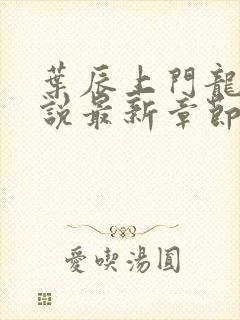 葉辰上門龍
說最新章節
愛喫湯圓